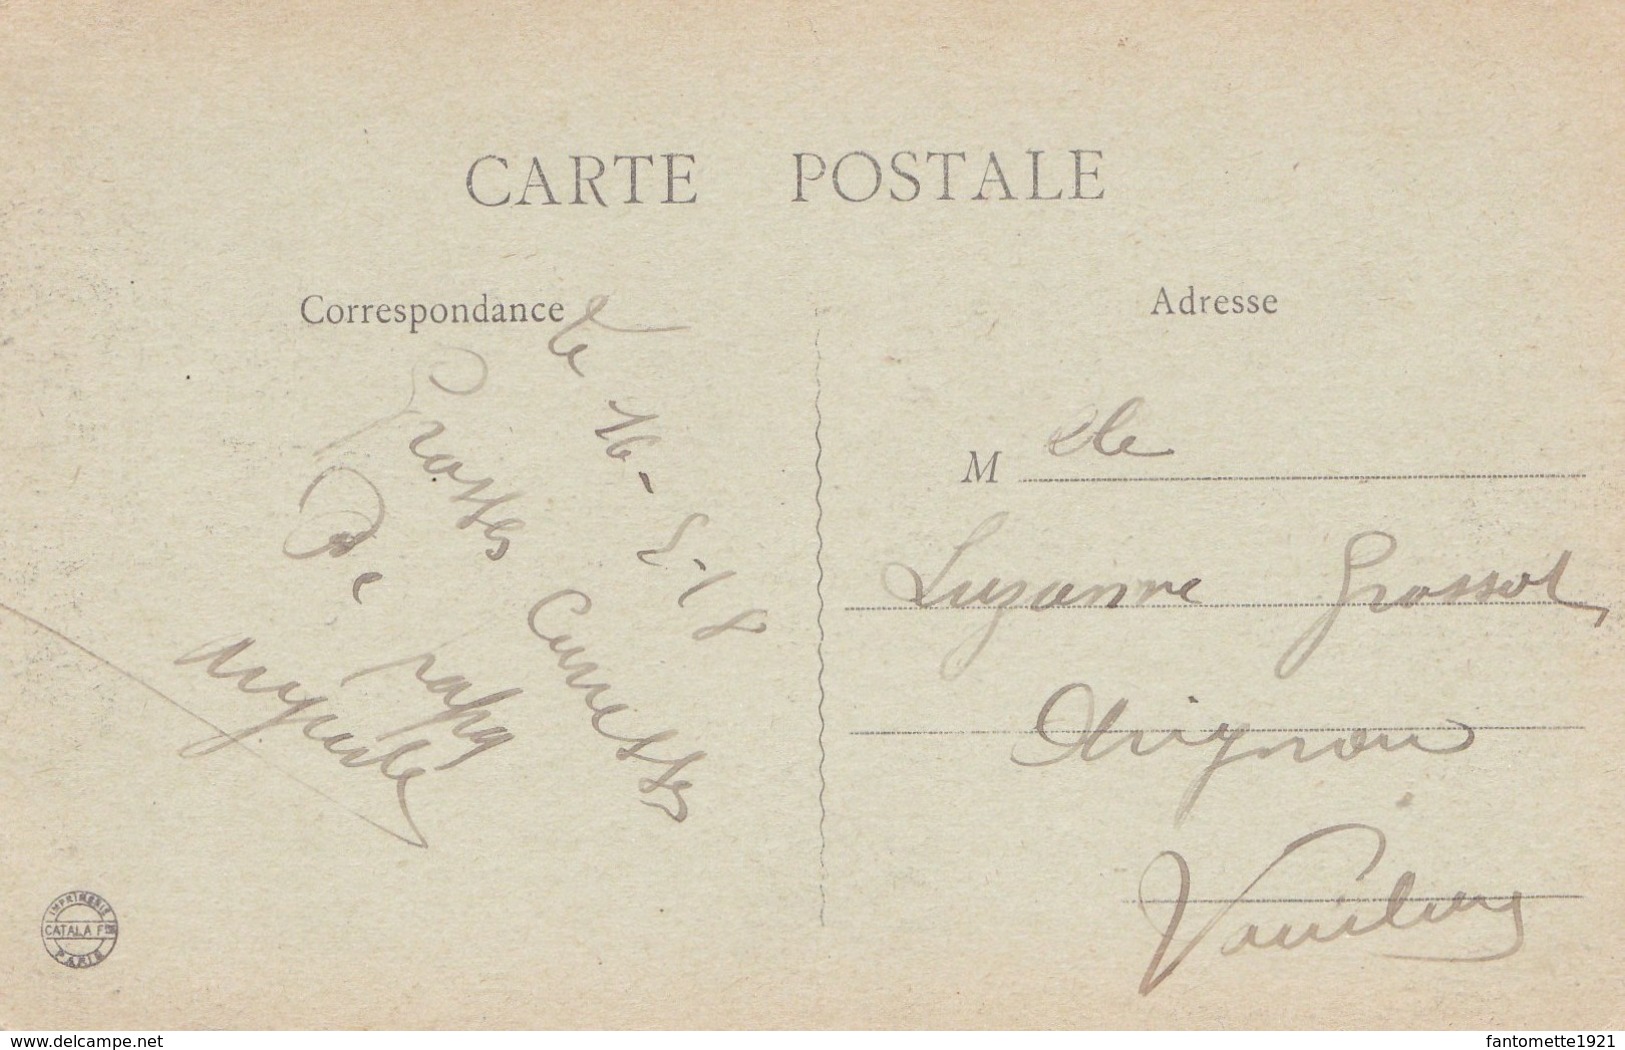 CARTE POSTALE
Correspondance
Adresse
le 16-5-18
Grosses Caresses
De papa
M elle
Suzanne Grossot
Avignon
Vaucluse
IMPRIMERIE
CATALA FRES
PARIS
www.delcampe.net
fantomette1921